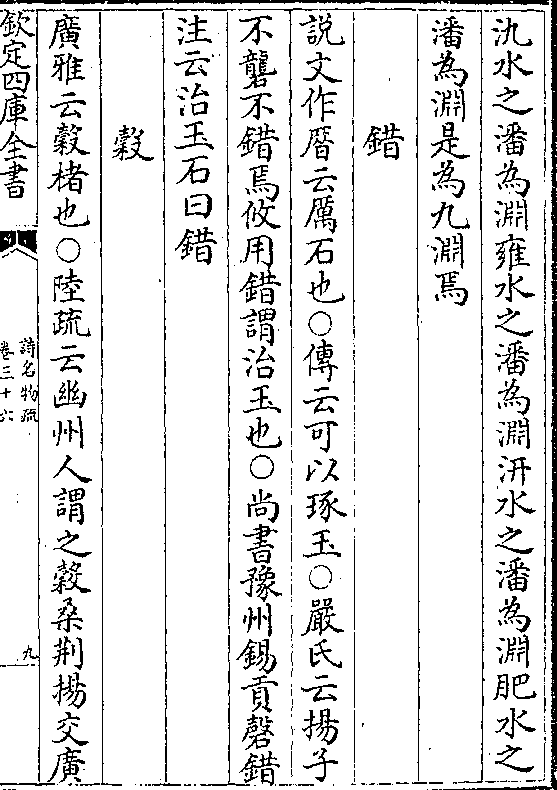 氿水之潘為淵雍水之潘為淵汧水之潘為淵肥水之
潘為淵是為九淵焉
錯
說文作厝云厲石也○傳云可以琢玉○嚴氏云揚子
不礱不錯焉攸用錯謂治玉也○尚書豫州錫貢磬錯
注云治玉石曰錯
榖
廣雅云榖楮也○陸疏云幽州人謂之榖桑荆揚交廣
欽定四庫全書
詩名物疏
卷三十六
九